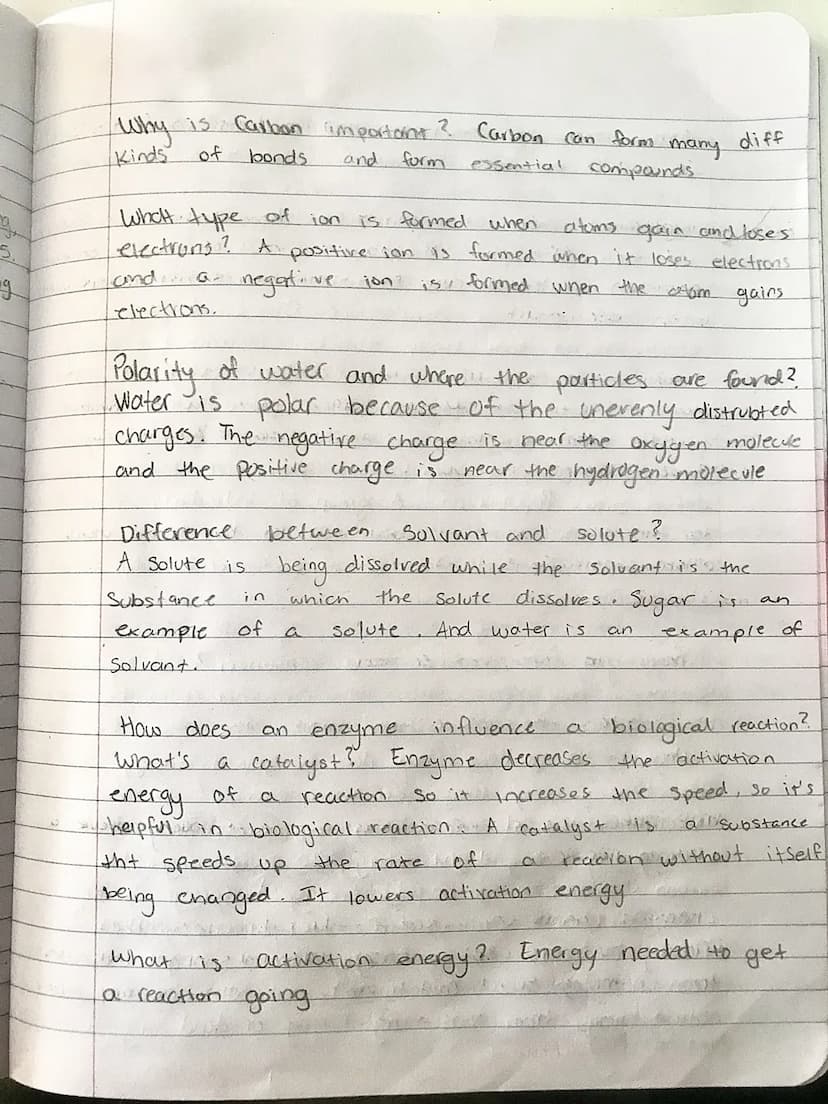 Why is Carbon important? Carbon can form many diff
kinds of bonds and form essential compounds
What type of ion is formed when atoms gain and loses
electrons? A positive ion is formed when it loses electrons
and a negative ion is formed when the atom gains
electrons.
Polarity of water and where the particles are found?
Water is polar because of the unevenly distrubted
charges. The negative charge is near the oxygen molecule
and the positive charge is near the hydrogen molecule
Difference between Solvant and solute?
A Solute is being dissolved while the Solvant is the
Substance in which the Solute dissolves. Sugar is an
example of a solute. And water is an example of
Solvant.
How does an enzyme influence a biological reaction?
What's a catalyst? Enzyme decreases the activation
energy of a reaction so it increases the speed, so it's
helpful in biological reaction. A catalyst is a substance
tht speeds up the rate of a reaction without itself
being changed. It lowers activation energy
What is activation energy? Energy needed to get
a reaction going
g,
5.
g